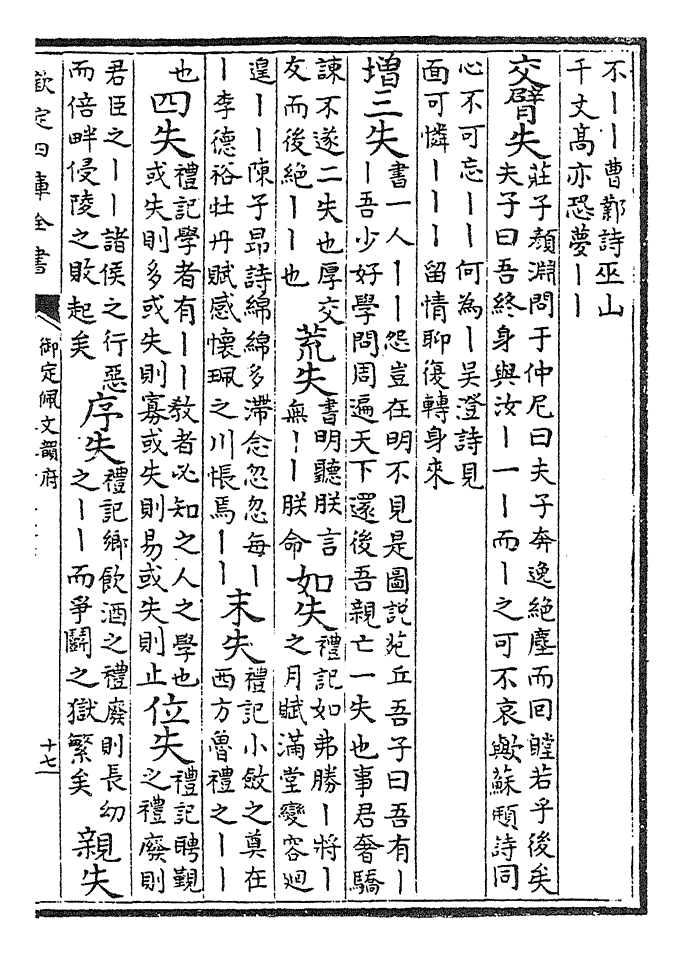 不丨丨曹鄴詩巫山
千丈髙亦恐夢丨丨
交臂失
莊子顔淵問于仲尼曰夫子奔逸絶塵而回瞠若乎後矣
夫子曰吾終身與汝丨一丨而丨之可不哀歟蘇頲詩同
心不可忘丨丨何為丨吳澄詩見
面可憐丨丨丨留情聊復轉身來
増三失
書一人丨丨怨豈在明不見是圖説苑丘吾子曰吾有丨
丨吾少好學問周遍天下還後吾親亡一失也事君奢驕
諫不遂二失也厚交
友而後絶丨丨也
荒失
書明聽朕言
無丨丨朕命
如失
禮記如弗勝丨將丨
之月賦滿堂變容迴
遑丨丨陳子昂詩綿綿多滯念忽忽每丨
丨李德裕牡丹賦感懷珮之川悵焉丨丨
末失
禮記小斂之奠在
西方魯禮之丨丨
也
四失
禮記學者有丨丨教者必知之人之學也
或失則多或失則寡或失則易或失則止
位失
禮記聘覲
之禮廢則
君臣之丨丨諸侯之行惡
而倍畔侵陵之敗起矣
序失
禮記鄉飲酒之禮廢則長幼
之丨丨而爭鬭之獄繁矣
親失
欽定四庫全書
御定佩文韻府
十七